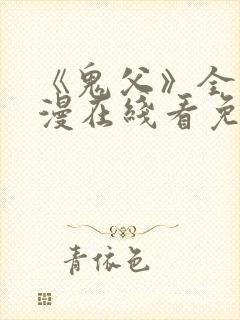 《鬼父》全
漫在线看免
青依色